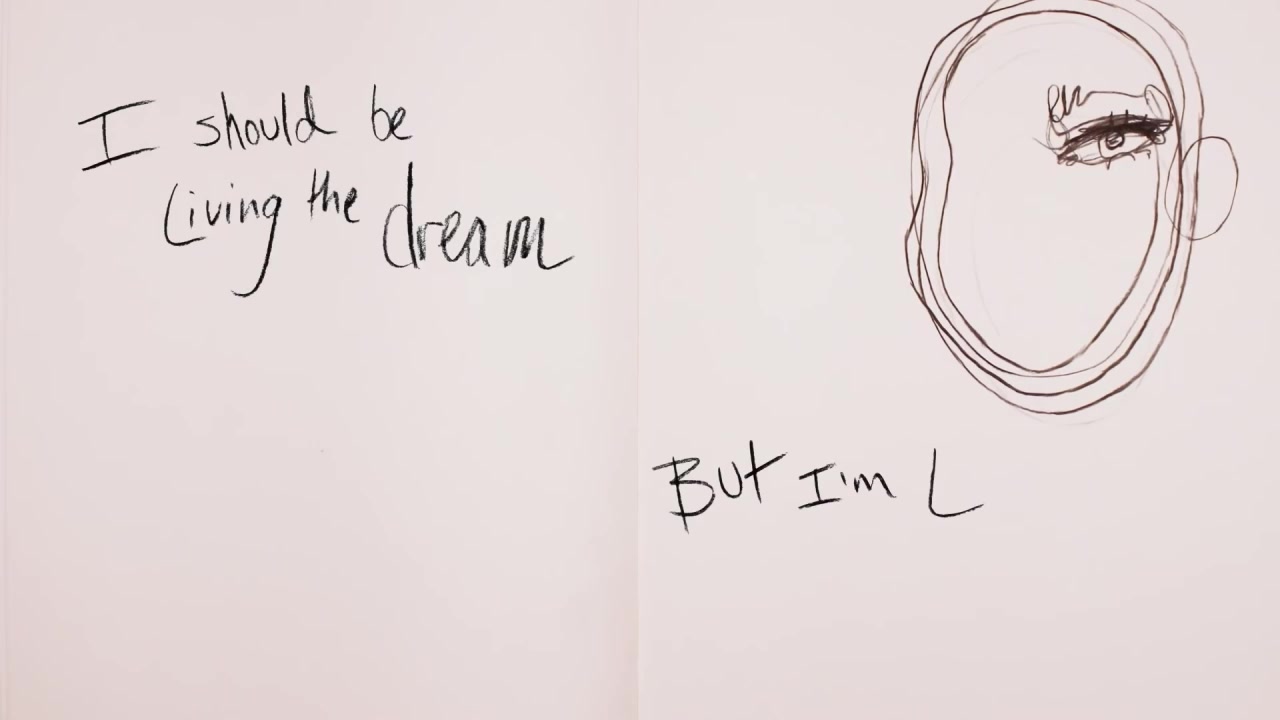 I should be
Living the dream
But I'm L